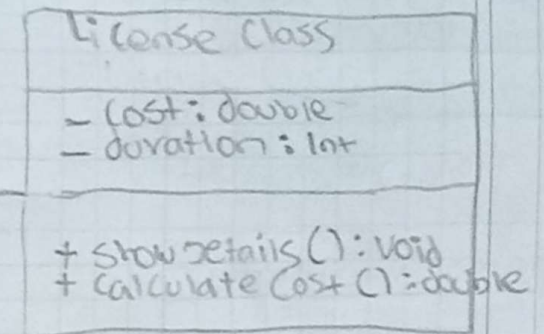 License Class
- Cost: double
- duration: Int
+ showDetails(): void
+ calculateCost(): double